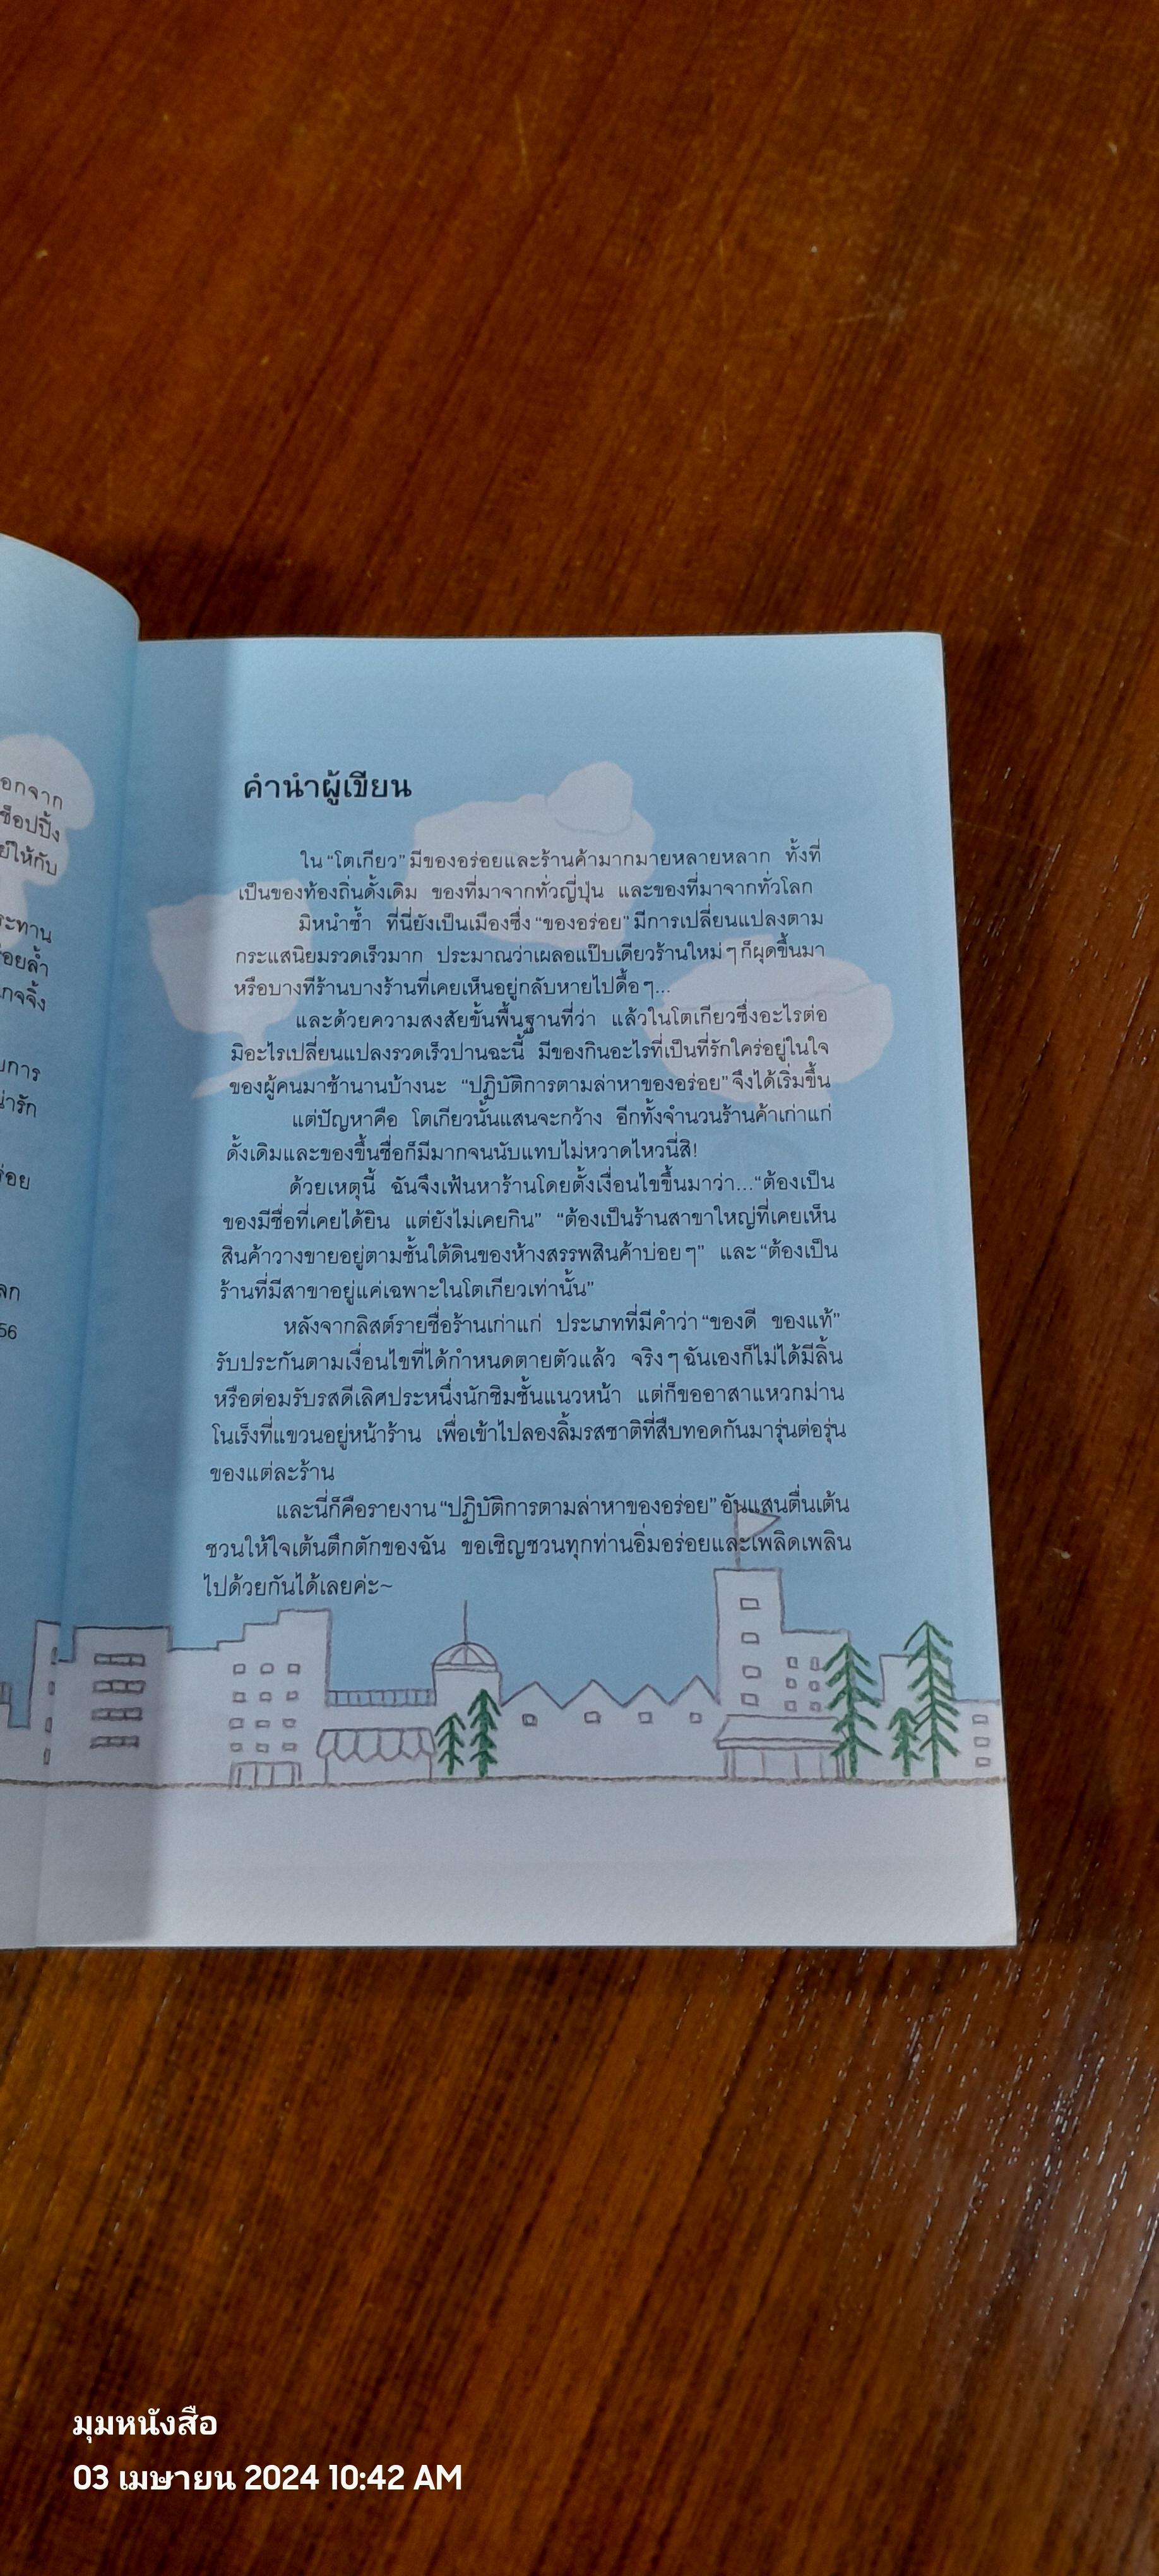 อกจาก
ช็อปปิ้ง
ย์ให้กับ
ระทาน
ร่อยล้ำ
าการ
น่ารัก
ร่อย
ลก
56
คำนำผู้เขียน
ใน “โตเกียว” มีของอร่อยและร้านค้ามากมายหลายหลาก ทั้งที่
เป็นของท้องถิ่นดั้งเดิม ของที่มาจากทั่วญี่ปุ่น และของที่มาจากทั่วโลก
มิหนำซ้ำ ที่นี่ยังเป็นเมืองซึ่ง “ของอร่อย” มีการเปลี่ยนแปลงตาม
กระแสนิยมรวดเร็วมาก ประมาณว่าเผลอแป๊บเดียวร้านใหม่ๆ ก็ผุดขึ้นมา
หรือบางทีร้านบางร้านที่เคยเห็นอยู่กลับหายไปดื้อๆ...
และด้วยความสงสัยขั้นพื้นฐานที่ว่า แล้วในโตเกียวซึ่งอะไรต่อ
มิอะไรเปลี่ยนแปลงรวดเร็วปานฉะนี้ มีของกินอะไรที่เป็นที่รักใคร่อยู่ในใจ
ของผู้คนมาช้านานบ้างนะ “ปฏิบัติการตามล่าหาของอร่อย” จึงได้เริ่มขึ้น
แต่ปัญหาคือ โตเกียวนั้นแสนจะกว้าง อีกทั้งจำนวนร้านค้าเก่าแก่
ดั้งเดิมและของขึ้นชื่อก็มีมากจนนับแทบไม่หวาดไหวนี่สิ!
ด้วยเหตุนี้ ฉันจึงเฟ้นหาร้านโดยตั้งเงื่อนไขขึ้นมาว่า...“ต้องเป็น
ของมีชื่อที่เคยได้ยิน แต่ยังไม่เคยกิน” “ต้องเป็นร้านสาขาใหญ่ที่เคยเห็น
สินค้าวางขายอยู่ตามชั้นใต้ดินของห้างสรรพสินค้าบ่อยๆ” และ “ต้องเป็น
ร้านที่มีสาขาอยู่แค่เฉพาะในโตเกียวเท่านั้น”
หลังจากลิสต์รายชื่อร้านเก่าแก่ ประเภทที่มีคำว่า “ของดี ของแท้”
รับประกันตามเงื่อนไขที่ได้กำหนดตายตัวแล้ว จริงๆ ฉันเองก็ไม่ได้มีลิ้น
หรือต่อมรับรสดีเลิศประหนึ่งนักชิมชั้นแนวหน้า แต่ก็ขออาสาแหวกม่าน
โนเร็งที่แขวนอยู่หน้าร้าน เพื่อเข้าไปลองลิ้มรสชาติที่สืบทอดกันมารุ่นต่อรุ่น
ของแต่ละร้าน
และนี่ก็คือรายงาน “ปฏิบัติการตามล่าหาของอร่อย” อันแสนตื่นเต้น
ชวนให้ใจเต้นตึกตักของฉัน ขอเชิญชวนทุกท่านอิ่มอร่อยและเพลิดเพลิน
ไปด้วยกันได้เลยค่ะ~
มุมหนังสือ
03 เมษายน 2024 10:42 AM